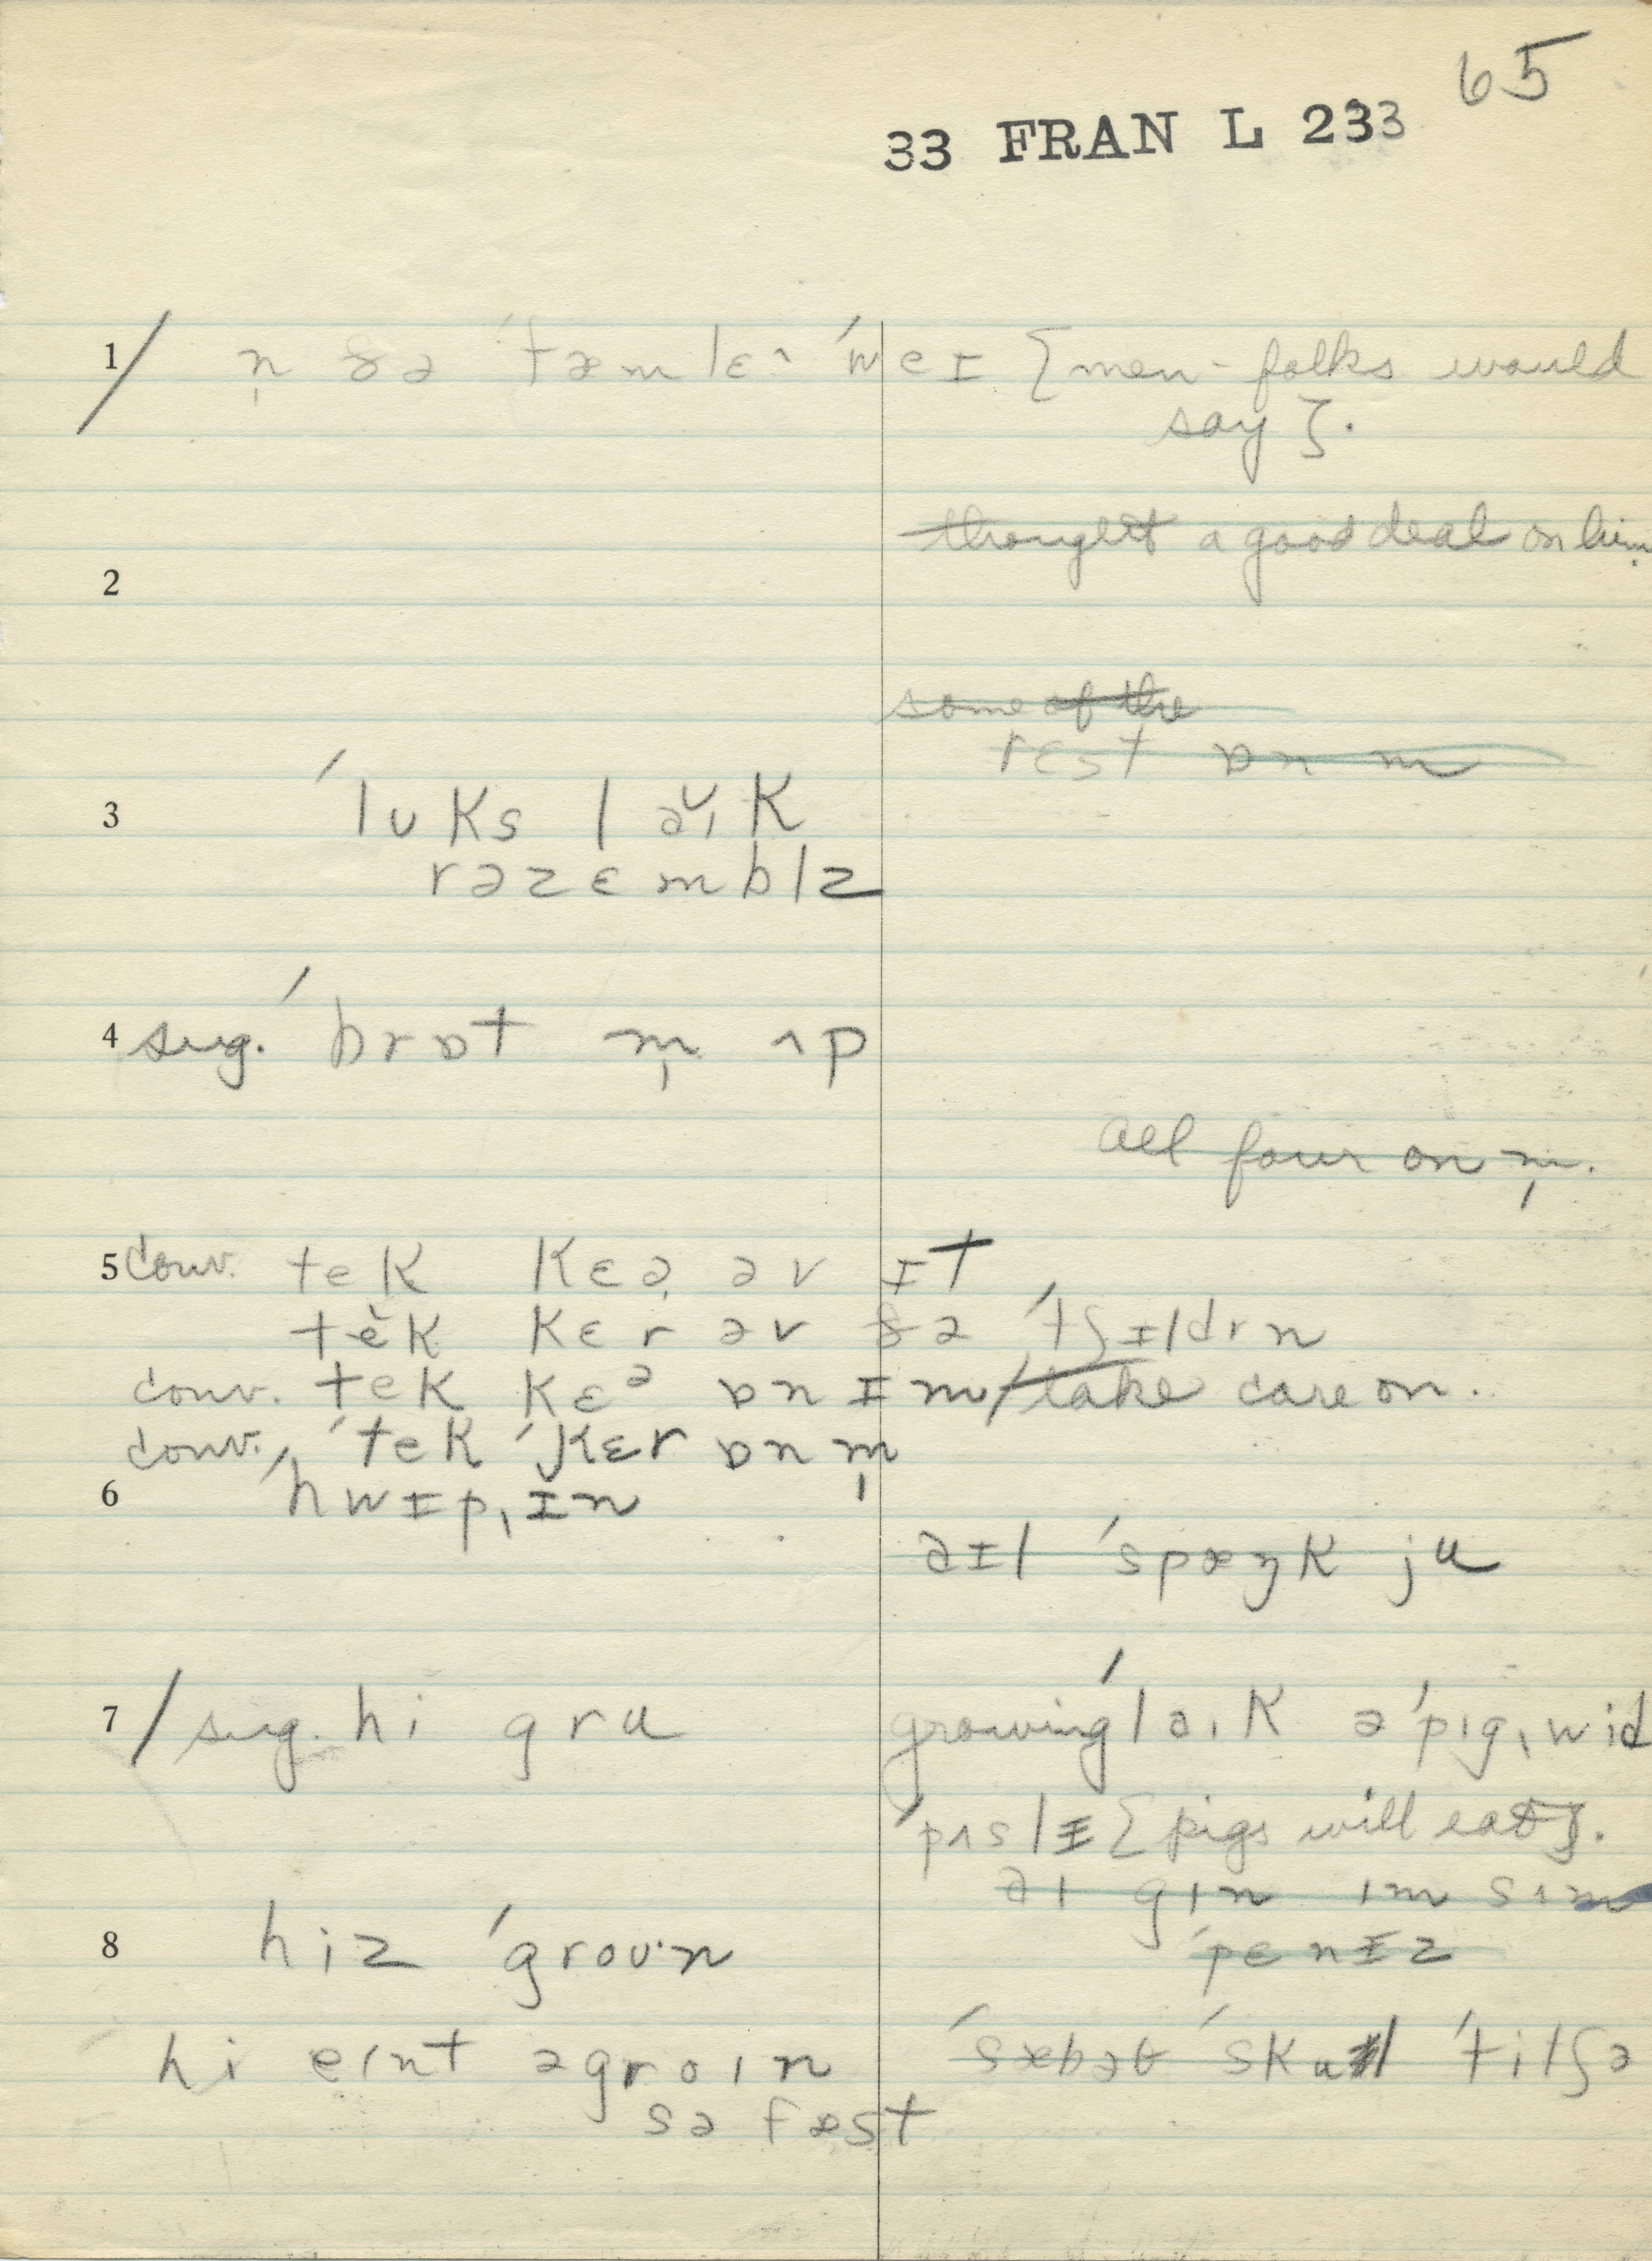 65
33 FRAN L 233
1/ n̩ ðə ˈfæmlɛˆ ˈweɪ {men-folks would
say}.
thought a good deal on him.
2
some of the
rɛst ɒn m
3 ˈlʊks lə̆ɪk
rəzɛmblz
4 sug. ˈbrɒt m̩ ʌp
all four on m̩.
5 conv. tek kɛə̯ əv ɪt
tĕk kɛr əv ðə ˈtʃɪldrn
conv. tek kɛᵊ ɒn ɪm/take care on.
conv. ˈtek ˈkɛr ɒn m̩
6 ˈhwɪpˌɪn
əɪl ˈspæŋk ju
7 / sug. hi gru growing ˈləɪk ə ˈpɪgˌwid
ˈpʌslɪ {pigs will eat}.
əɪ gɪn ɪm sʌm
8 hiz ˈgroʊˑn ˈpɛnɪz
hi eɪnt əgroɪn ˈsæbəθ ˈskul ˈtitʃə
sə fæst